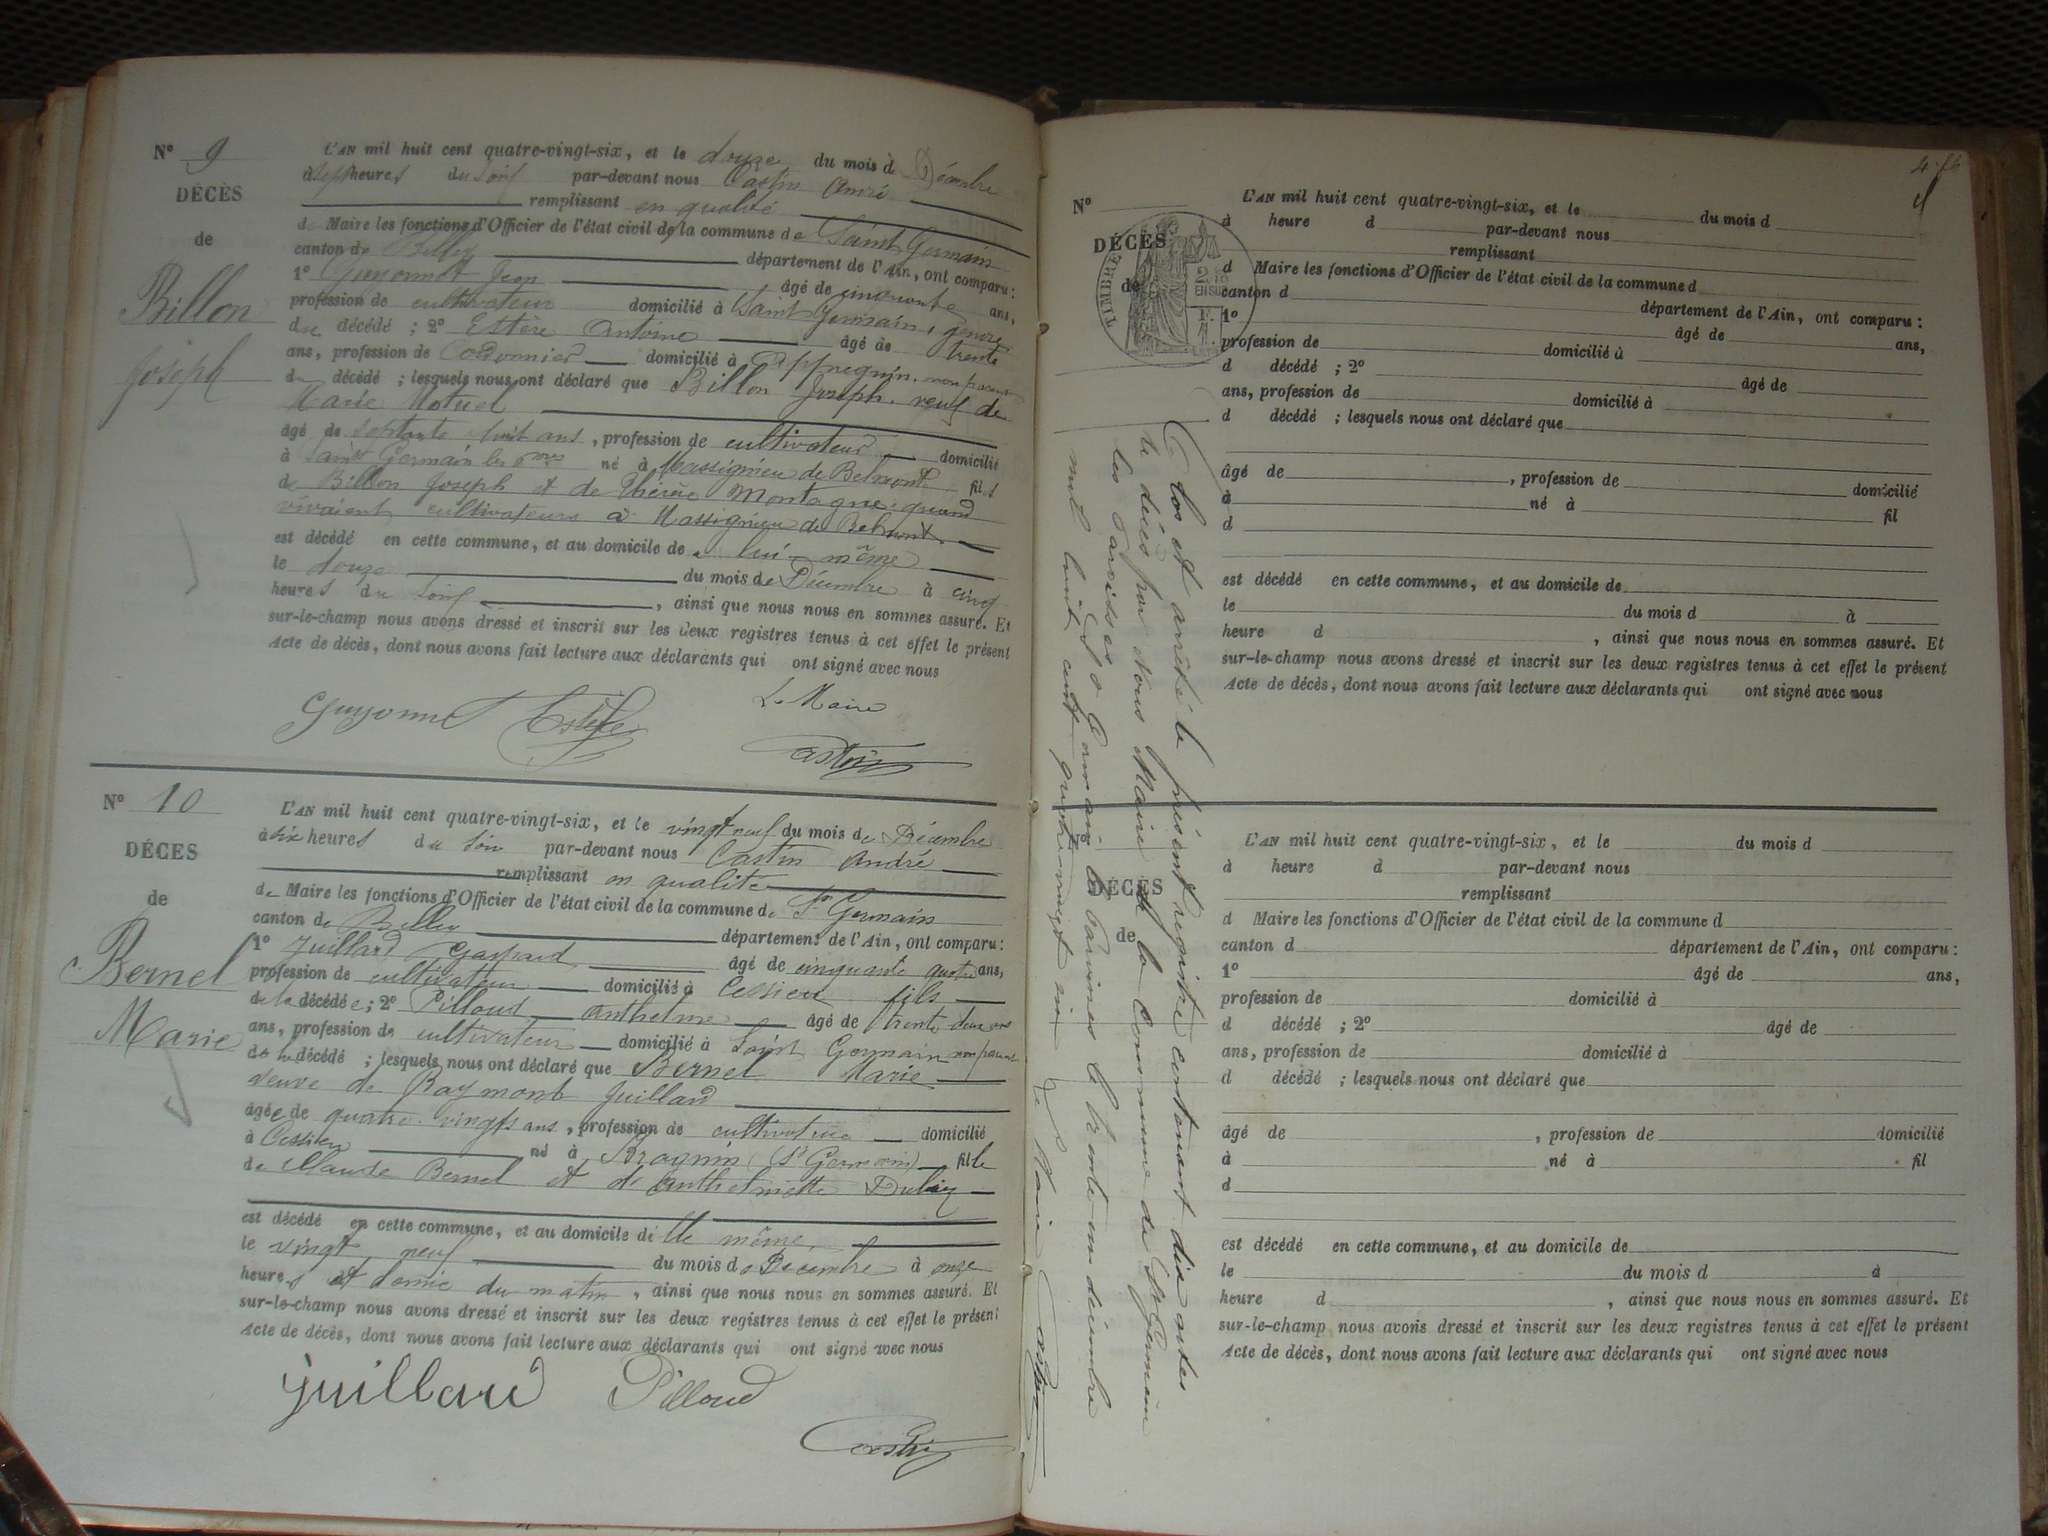 N° 9
DÉCÈS
de
Billon
Joseph
L'AN mil huit cent quatre-vingt-six, et le douze du mois de Décembre
à sept heures du soir par-devant nous Castin André
remplissant en qualité
de Maire les fonctions d'Officier de l'état civil de la commune de Saint Germain
canton de Belley département de l'Ain, ont comparu :
1° Guyonnet Jean âgé de cinquante ans,
profession de cultivateur domicilié à Saint Germain, gendre
du décédé ; 2° Estère Antoine âgé de trente
ans, profession de Cordonnier domicilié à non parent
du décédé ; lesquels nous ont déclaré que Billon Joseph veuf de
Marie
âgé de septante huit ans, profession de cultivateur domicilié
à Saint Germain les né à Massignieu de Belmont fils
de Billon Joseph et de Thérèse Montagne quand
vivaient cultivateurs à Massignieu de Belmont
est décédé en cette commune, et au domicile de lui-même
le douze du mois de Décembre à cinq
heures du soir, ainsi que nous nous en sommes assuré. Et
sur-le-champ nous avons dressé et inscrit sur les deux registres tenus à cet effet le présent
Acte de décès, dont nous avons fait lecture aux déclarants qui ont signé avec nous
Guyonnet Le Maire
Castin
N° 10
DÉCÈS
de
Bernel
Marie
L'AN mil huit cent quatre-vingt-six, et le vingt neuf du mois de Décembre
à six heures du soir par-devant nous Castin André
remplissant en qualité
de Maire les fonctions d'Officier de l'état civil de la commune de St Germain
canton de Belley département de l'Ain, ont comparu :
1° Juillard Gaspard âgé de cinquante quatre ans,
profession de cultivateur domicilié à Cessieu fils
de la décédée ; 2° Pilloud Anthelme âgé de trente deux ans
ans, profession de cultivateur domicilié à Saint Germain non parent
de la décédé ; lesquels nous ont déclaré que Bernel Marie
veuve de Raymont Juillard
âgée de quatre vingts ans, profession de cultivatrice domicilié
à Cessieu né à Brognin (St Germain) fille
de Claude Bernel et de Anthelmette
est décédé en cette commune, et au domicile d'elle même,
le vingt neuf du mois de Décembre à onze
heures et demie du matin, ainsi que nous nous en sommes assuré. Et
sur-le-champ nous avons dressé et inscrit sur les deux registres tenus à cet effet le présent
Acte de décès, dont nous avons fait lecture aux déclarants qui ont signé avec nous
Juillard Pilloud
Castin
N°
DÉCÈS
de
TIMBRE
L'AN mil huit cent quatre-vingt-six, et le du mois d
à heure d par-devant nous
remplissant
d Maire les fonctions d'Officier de l'état civil de la commune d
canton d département de l'Ain, ont comparu :
1° âgé de ans,
profession de domicilié à
d décédé ; 2° âgé de
ans, profession de domicilié à
d décédé ; lesquels nous ont déclaré que
âgé de , profession de domicilié
à né à fil
d
est décédé en cette commune, et au domicile de
le du mois d à
heure d , ainsi que nous nous en sommes assuré. Et
sur-le-champ nous avons dressé et inscrit sur les deux registres tenus à cet effet le présent
Acte de décès, dont nous avons fait lecture aux déclarants qui ont signé avec nous
Clos et arrêté le présent registre contenant dix actes
de décès par Nous Maire de la Commune de St Germain
les Paroisses St Germain les Paroisses le trente-un décembre
mil huit cent quatre-vingt-six
Le Maire Castin
N°
DÉCÈS
de
L'AN mil huit cent quatre-vingt-six, et le du mois d
à heure d par-devant nous
remplissant
d Maire les fonctions d'Officier de l'état civil de la commune d
canton d département de l'Ain, ont comparu :
1° âgé de ans,
profession de domicilié à
d décédé ; 2° âgé de
ans, profession de domicilié à
d décédé ; lesquels nous ont déclaré que
âgé de , profession de domicilié
à né à fil
d
est décédé en cette commune, et au domicile de
le du mois d à
heure d , ainsi que nous nous en sommes assuré. Et
sur-le-champ nous avons dressé et inscrit sur les deux registres tenus à cet effet le présent
Acte de décès, dont nous avons fait lecture aux déclarants qui ont signé avec nous